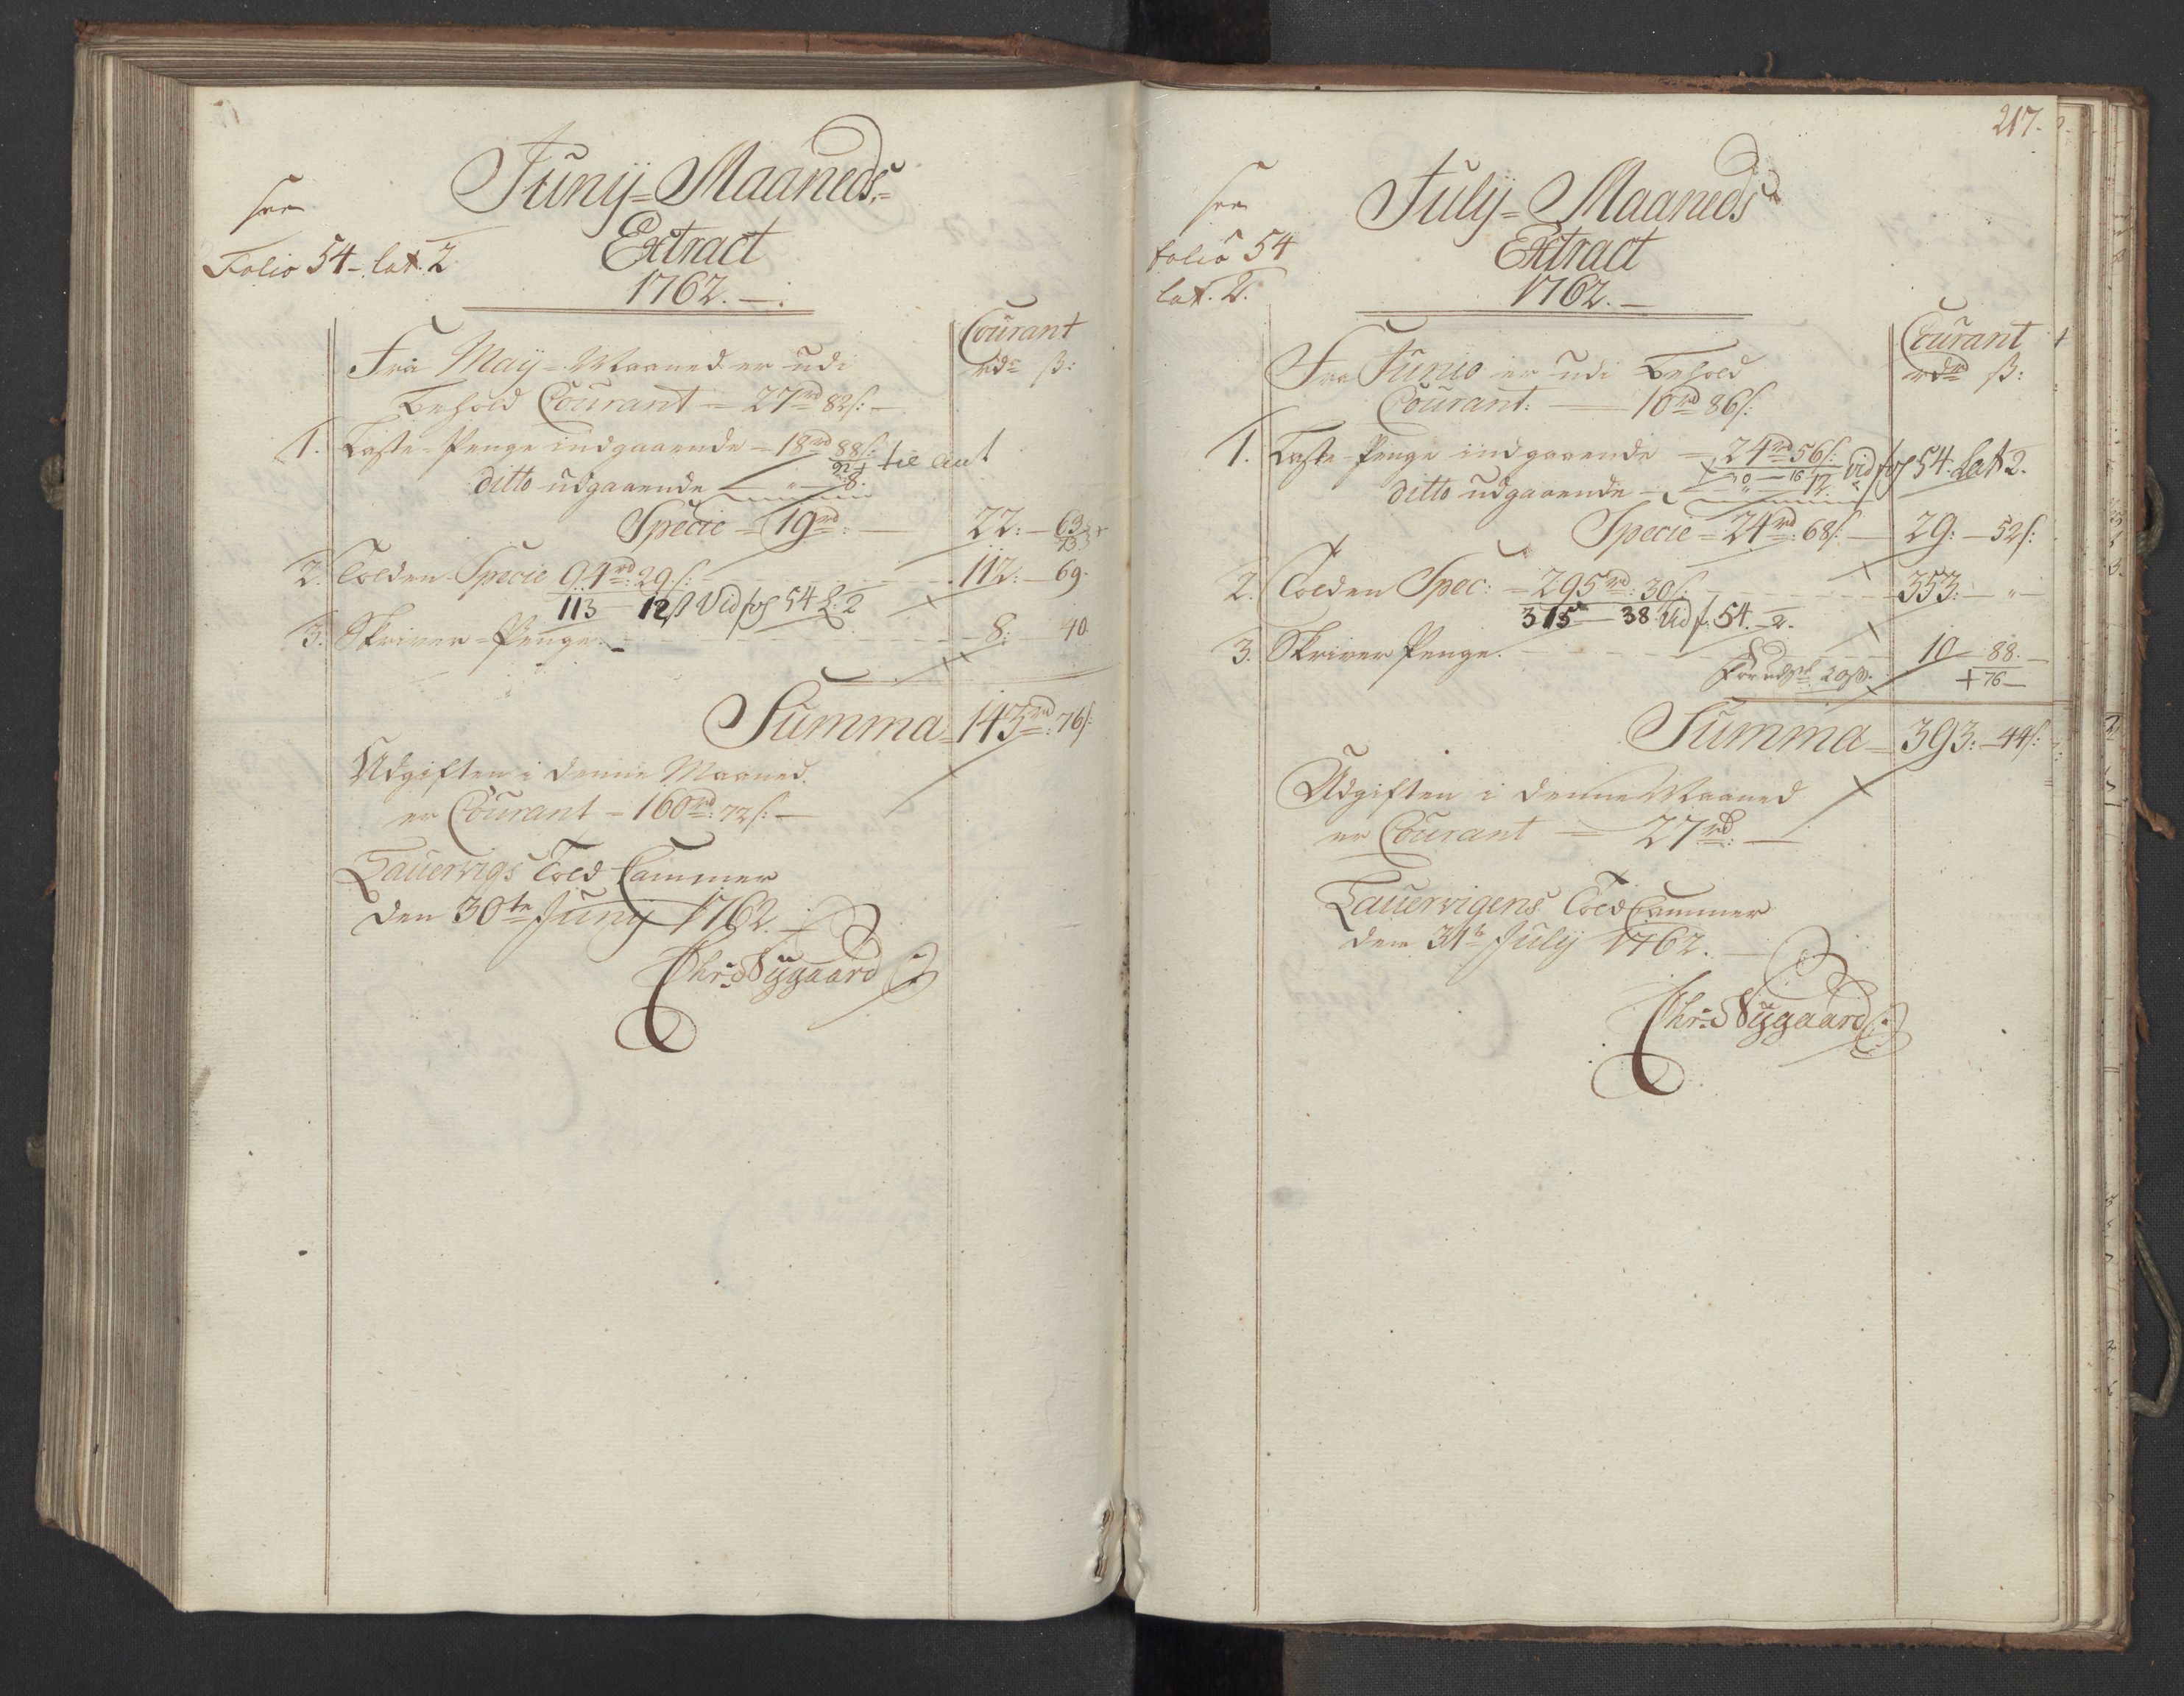 Junÿ= Maaneds=
Extract
1762.—.
see
Folio 54 – lat. 2
Courant
rdr ß:
Fra Maÿ= Maaned er udi
Behold Courant – 27rd 82ß: –
1. Læste-Penge indgaaende = 18rd 88ß:
92 + til Cur t
ditto udgaaende – " – 8.
Specie = 19rd: — 22: – 63
73
2. Tolden Specie 94rd: 29ß: – 112: – 69.
113 – 12ß Vid fol 54 L: 2
3. Skriver=Penge. – 8: 40
Summa = 143rd: 76ß:
Udgiften i denne Maaned
er Courant = 160rd: 72ß: —
Lauervigs Told Cammer
den 30te Junÿ 1762. –
Chr: Nÿgaard
217.
Julÿ= Maaneds
Extract
1762. —
see
folio 54
lat. 2.
Courant
rdr ß:
Fra Junio er udi Behold
Courant: — 10rd 86ß:
1. Læste-Penge indgaaende = 24rd 56ß:
16 Vid fol 54. Lat 2.
ditto udgaaende – " – 12.
Specie = 24rd: 68ß: — 29: – 52ß:
2. Tolden Spec: = 295rd: 30ß: – 353: – " –
315 – 38 Vid f: 54. – 2.
3. Skriver Penge. – 10 – 88. –
+ 76 –
Summa = 393: – 44ß:
Udgiften i denne Maaned
er Courant = 27rd: —
Lauervigens Told Cammer
den 31te Julÿ 1762. —
Chr: Nÿgaard